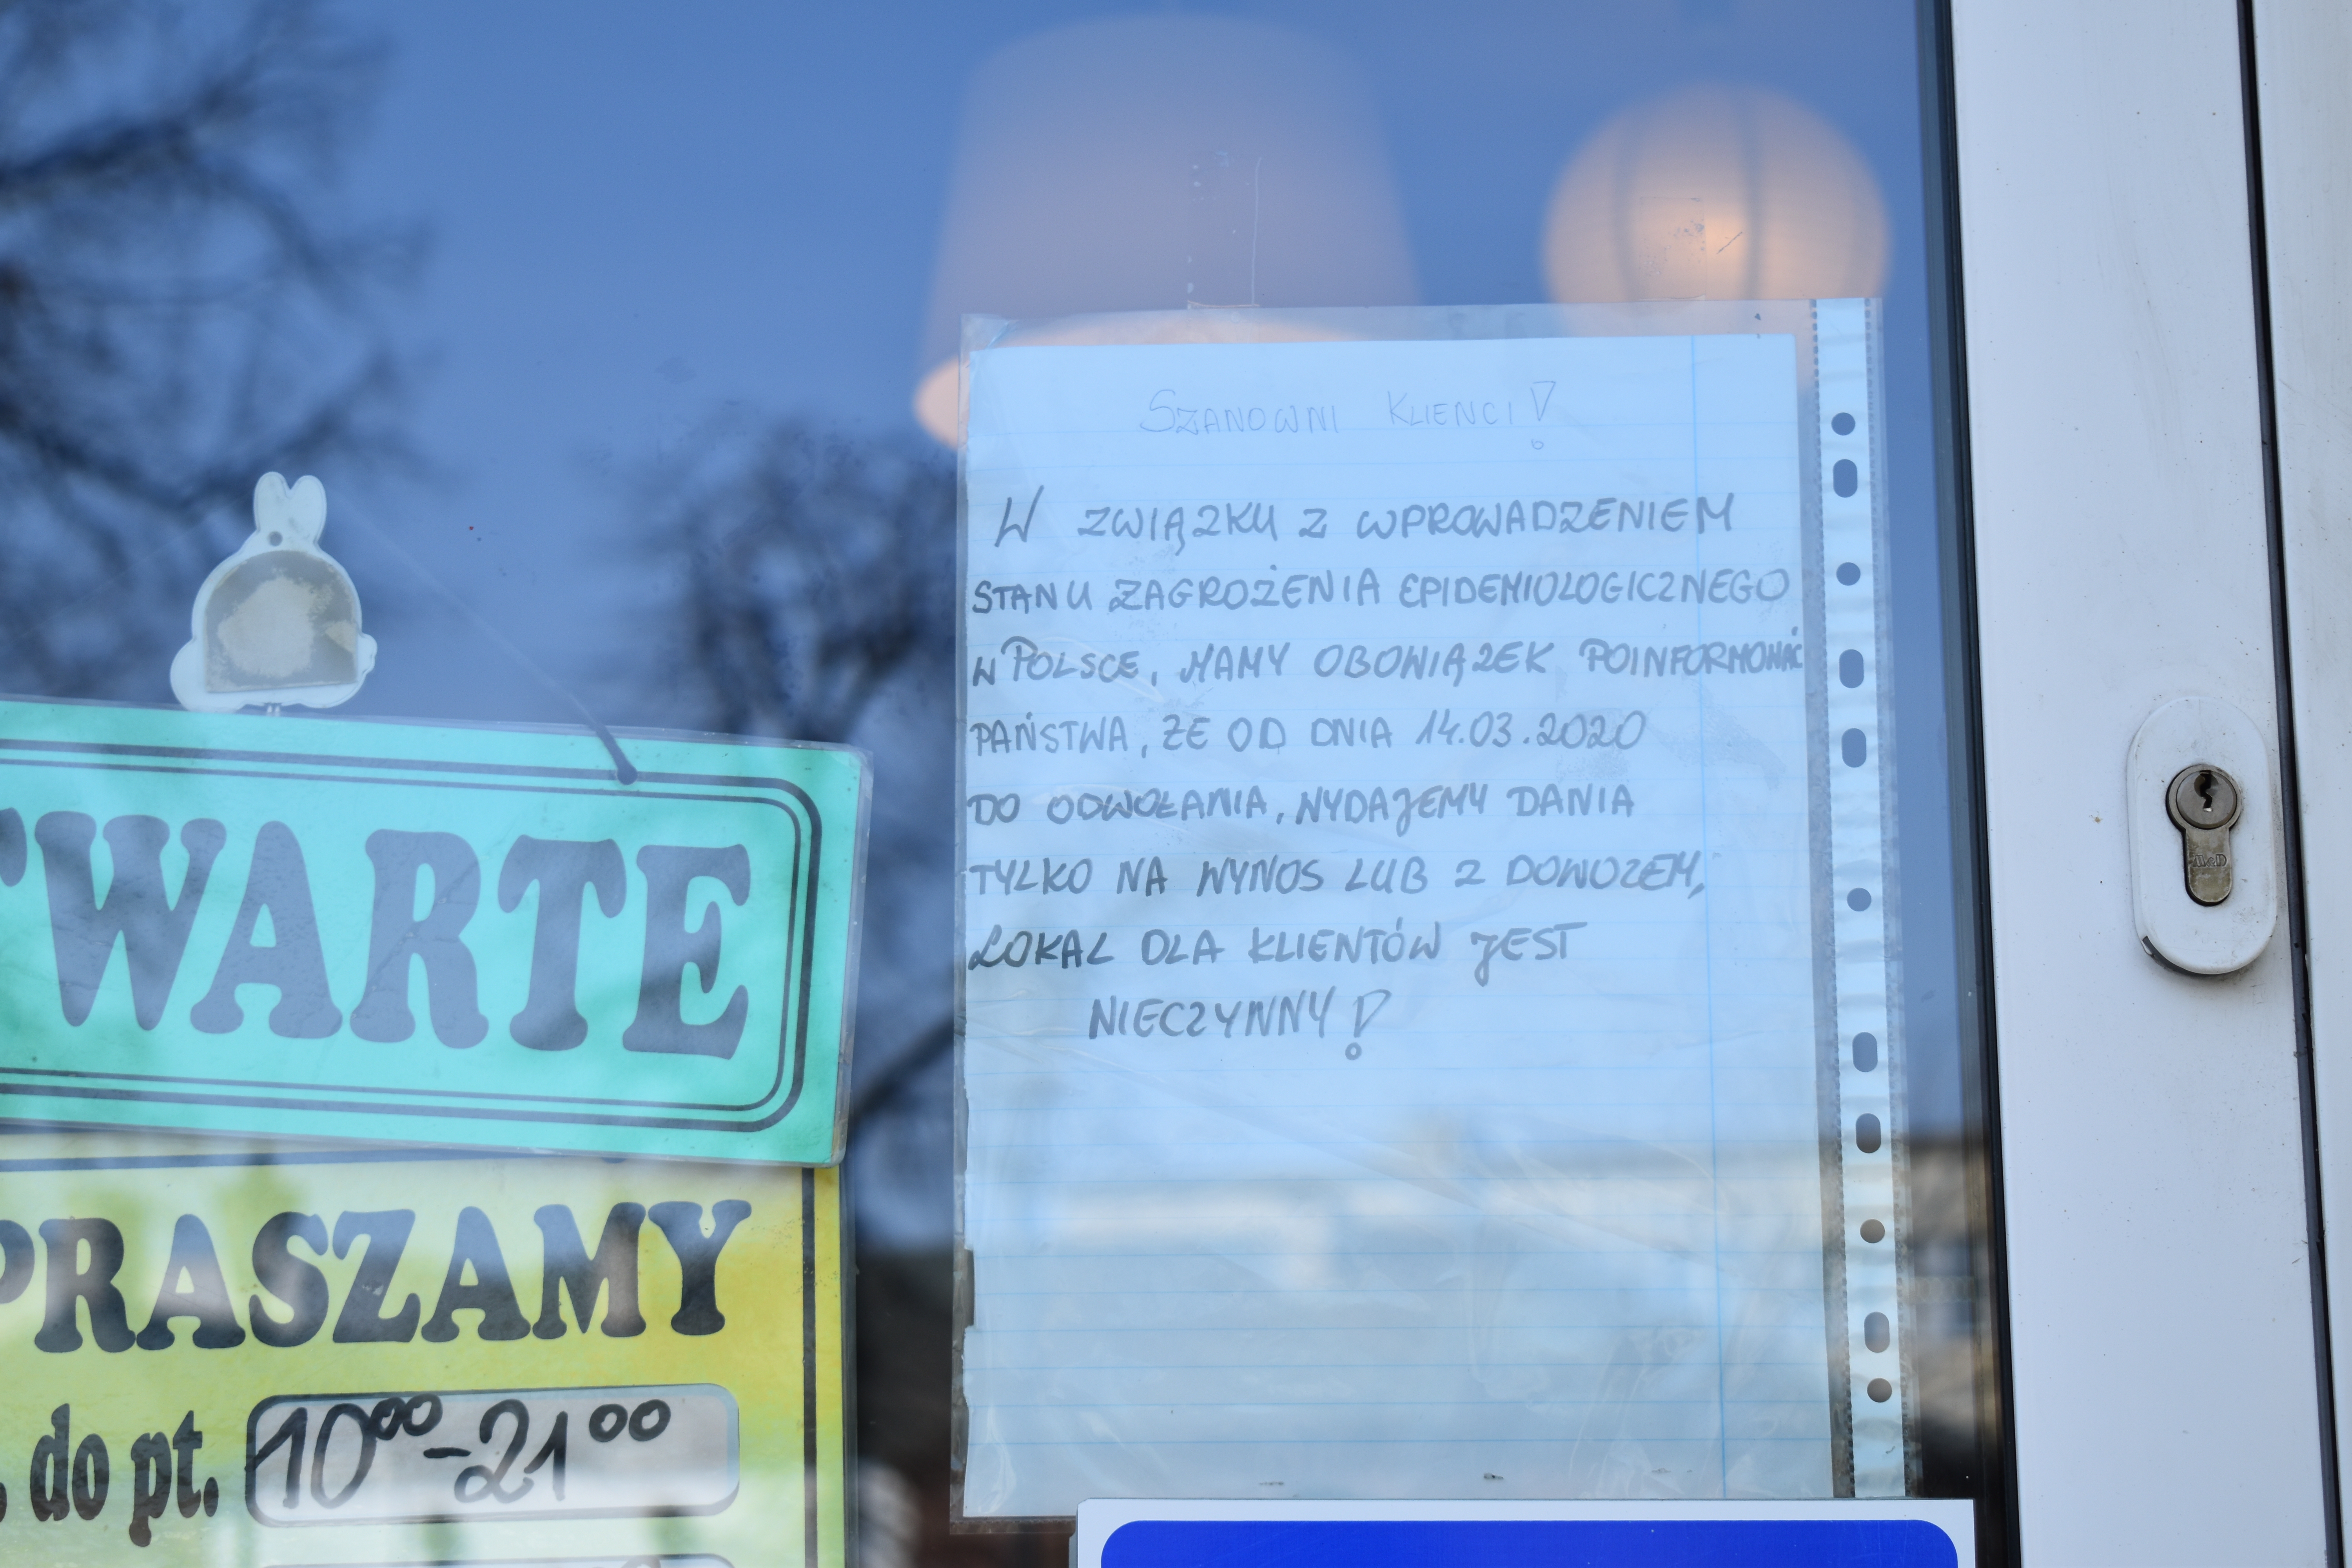 SZANOWNI KLIENCI!
W ZWIĄZKU Z WPROWADZENIEM
STANU ZAGROŻENIA EPIDEMIOLOGICZNEGO
W POLSCE, MAMY OBOWIĄZEK POINFORMOWAĆ
PAŃSTWA, ŻE OD DNIA 14.03.2020
DO ODWOŁANIA, WYDAJEMY DANIA
TYLKO NA WYNOS LUB Z DOWOZEM,
LOKAL DLA KLIENTÓW JEST
NIECZYNNY!
TWARTE
PRASZAMY
. do pt. 10⁰⁰-21⁰⁰